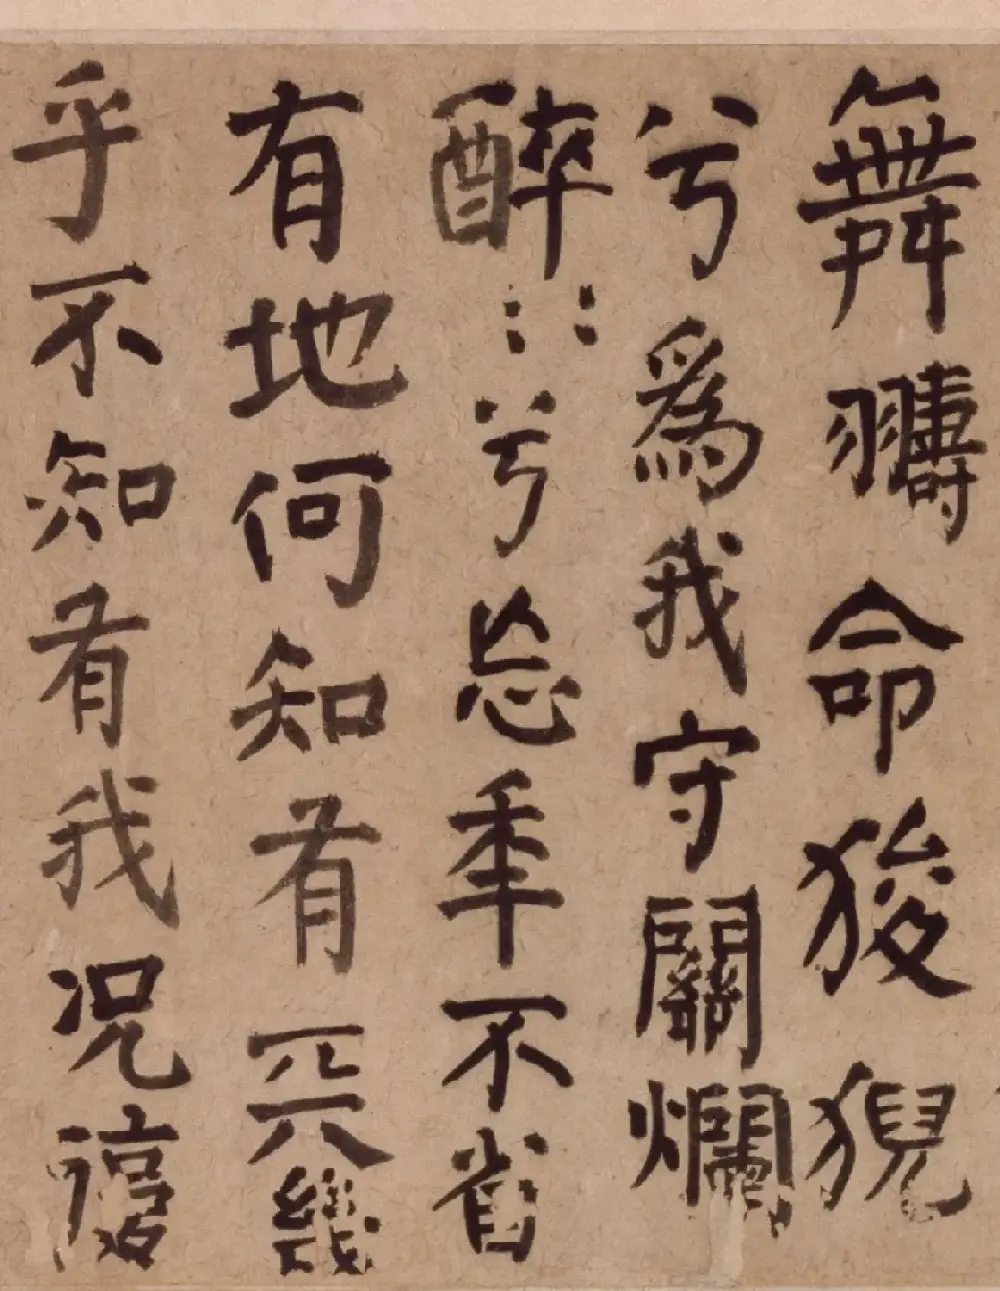 舞翿命狻猊
兮為我守關爛
醉::兮忘年不省
有地何知有兲幾
乎不知有我況